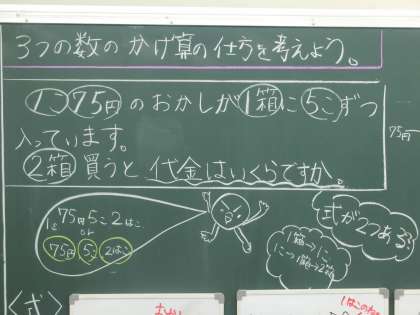 3つの数の かけ算の仕方を考えよう。
1こ75円のおかしが1箱に5こずつ
入っています。
2箱 買うと代金はいくらですか。
75円
75円5こ2はこ
75円 5こ 2はこ
式が2つある。
〈式〉